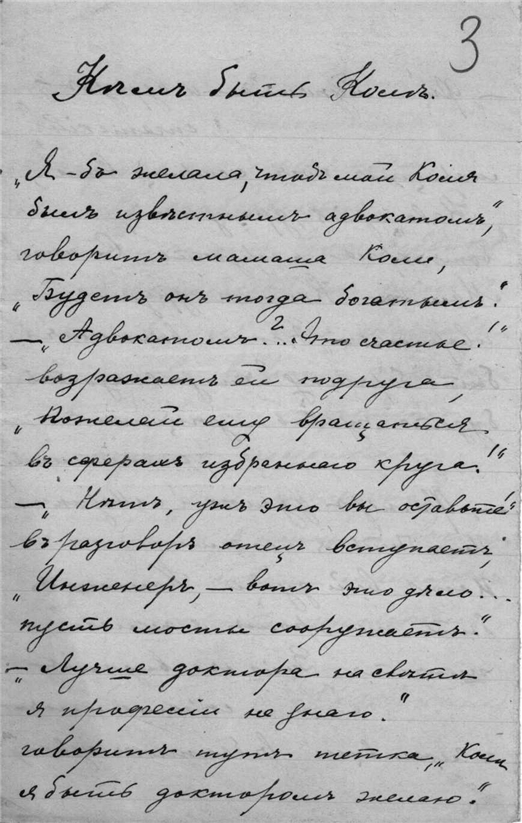 3
Кѣмъ быть Колѣ.
„Я-бъ желала, чтобъ мой Коля
былъ извѣстнымъ адвокатомъ“,
говоритъ мамаша Коли,
„Будетъ онъ тогда богатымъ“.
— „Адвокатомъ?.. Это счастье!“
возражаетъ ей подруга,
„Пожелай ему вращаться
въ сферахъ избраннаго круга!“
— „Нѣтъ, ужъ это вы оставьте!“
въ разговоръ отецъ вступаетъ,
„Инженеръ, — вотъ это дѣло...
пусть мосты сооружаетъ.“
— „Лучше доктора на свѣтѣ
я професcіи не знаю.“
говоритъ тутъ тетка, „Коли
я быть докторомъ желаю.“